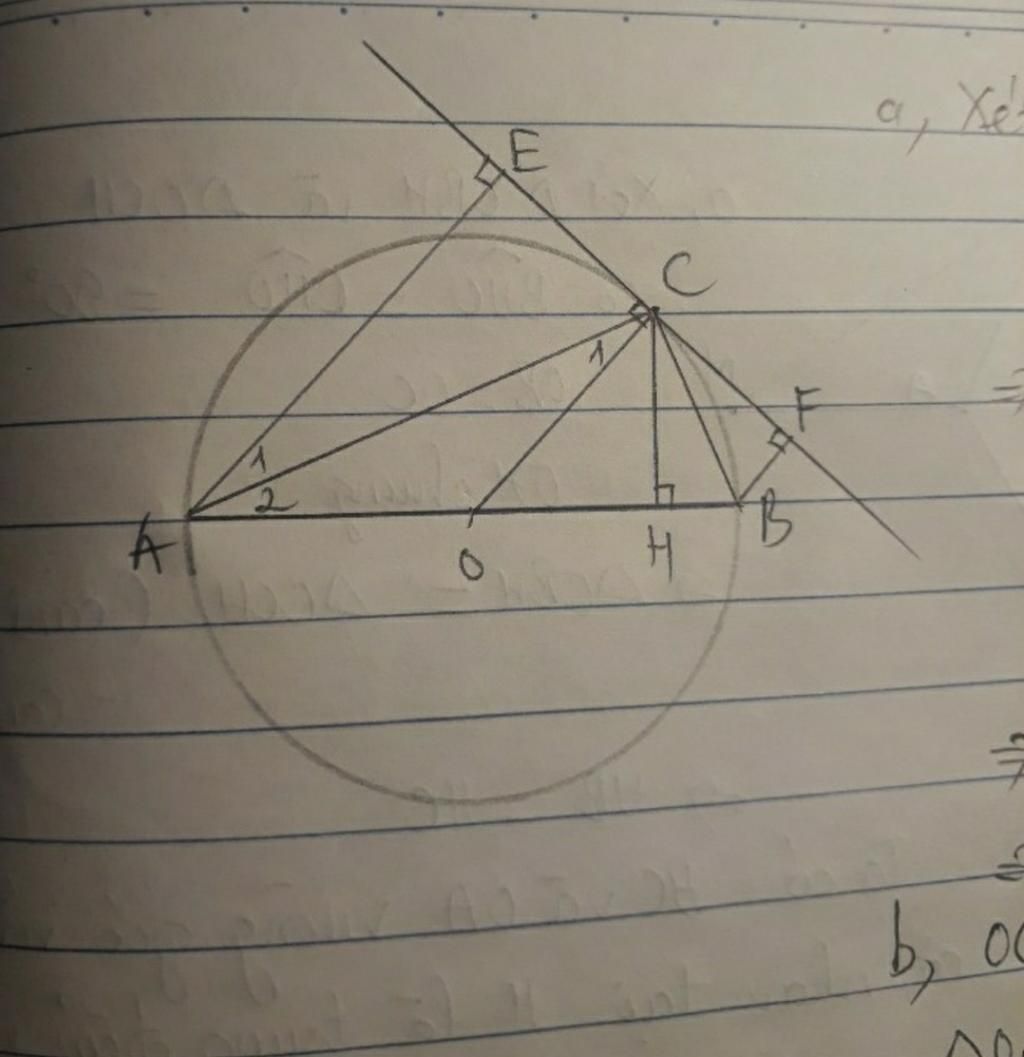 a, Xé
E
C
1
F
1
2
A
O
H
B
⇒
⇒
⇒
b, OC